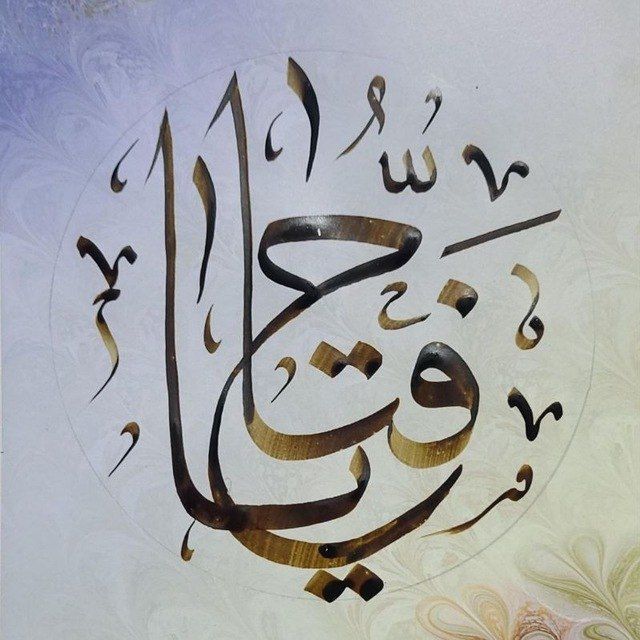 يا فتاح